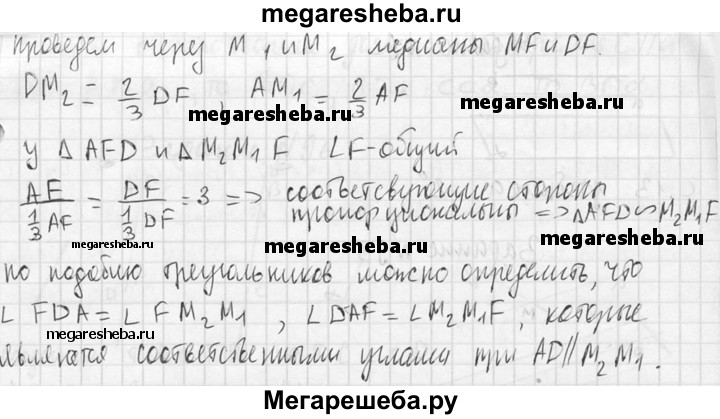 megaresheba.ru
проведем через M1 и M2 медианы MF и DF.
DM2 = 2/3 DF, AM1 = 2/3 AF
megaresheba.ru
megaresheba.ru
у Δ AFD и Δ M2M1F ∠F-общий
AF / 1/3 AF = DF / 1/3 DF = 3 => соответсвующие стороны
пропорциональны => ΔAFD ∽ M2M1F
megaresheba.ru megaresheba.ru megaresheba.ru
по подобию треугольников можно определить, что
∠ FDA = ∠ FM2M1, ∠DAF = ∠M2M1F, которые
megaresheba.ru megaresheba.ru
являются соответственными углами при AD∥M2M1.
Мегарешеба.ру